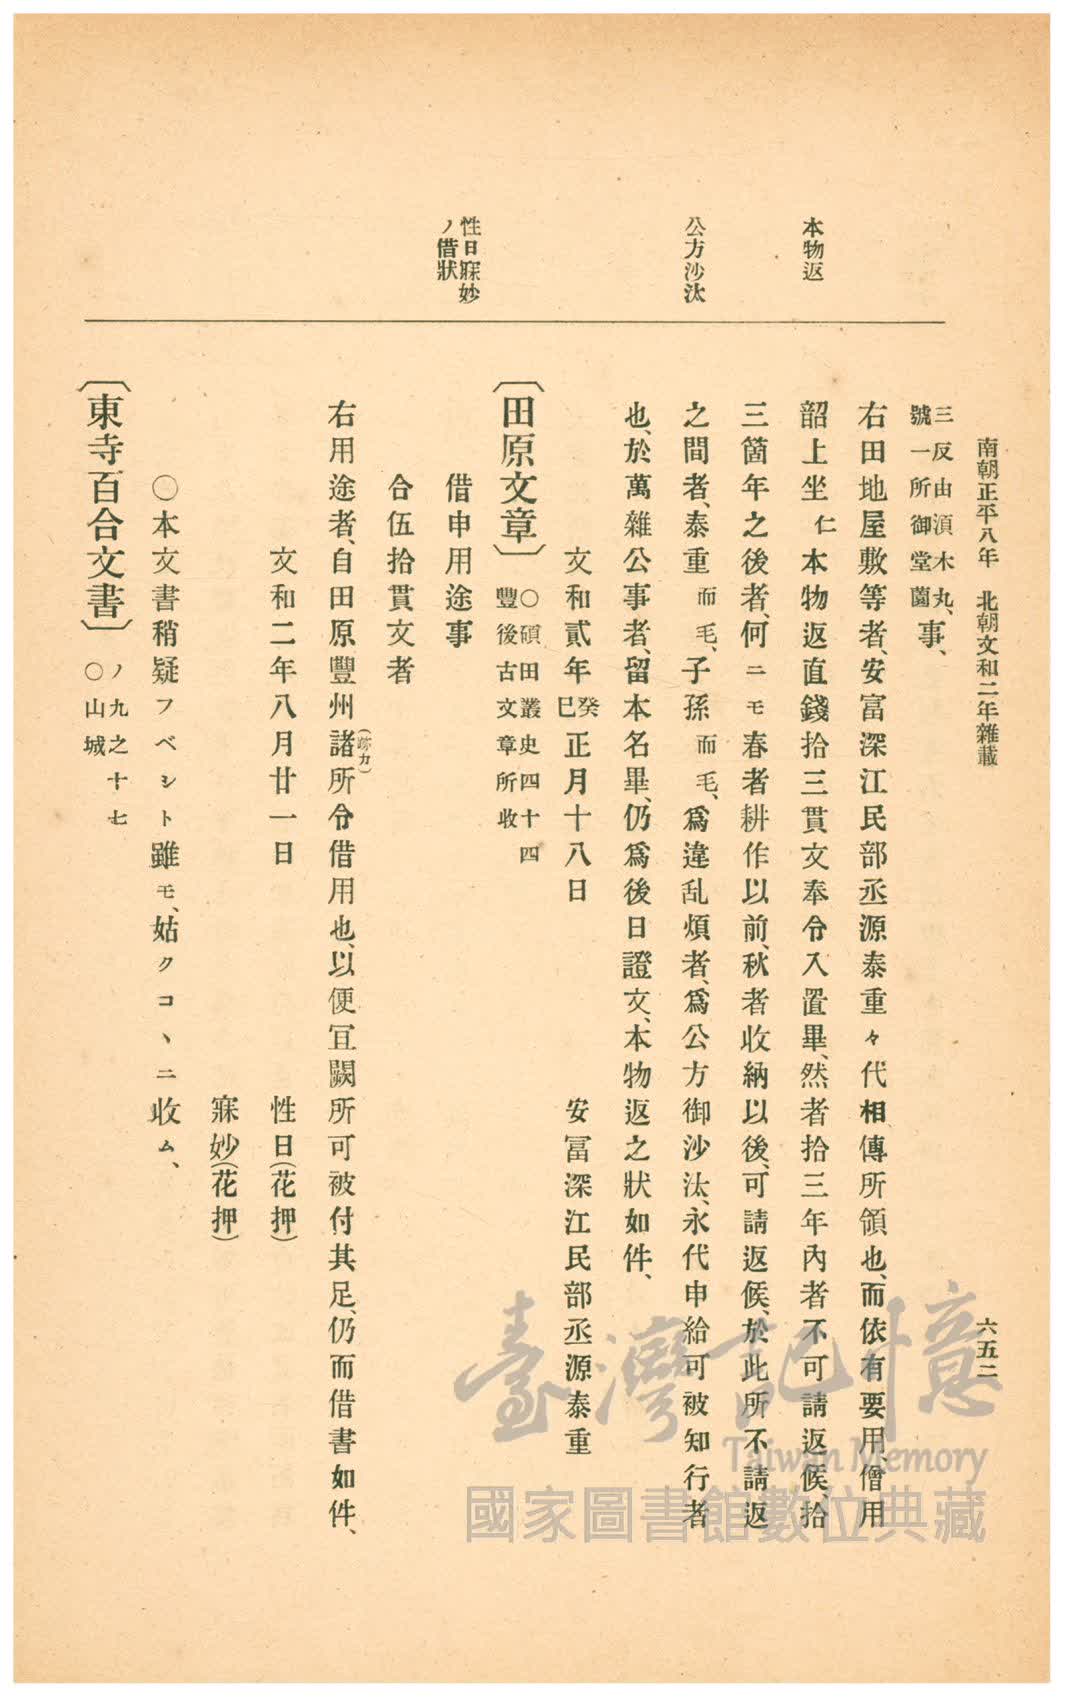 南朝正平八年 北朝文和二年雜載 六五二
本物返
公方沙汰
性日寐妙
ノ借狀
三反由須木丸、
號一所御堂薗事、
右田地屋敷等者、安富深江民部丞源泰重々代相傳所領也、而依有要用、僧用
韶上坐仁本物返直錢拾三貫文奉令入置畢、然者拾三年內者不可請返候、拾
三箇年之後者、何ニモ春者耕作以前、秋者收納以後、可請返候、於此所不請返
之間者、泰重而毛、子孫而毛、爲違乱煩者、爲公方御沙汰、永代申給可被知行者
也、於萬雜公事者、留本名畢、仍爲後日證文、本物返之狀如件、
文和貳年癸巳正月十八日 安冨深江民部丞源泰重
〔田原文章〕 ○碩田叢史四十四
豐後古文章所收
借申用途事
合伍拾貫文者
右用途者、自田原豐州諸(跡カ)所令借用也、以便冝闕所可被付其足、仍而借書如件、
文和二年八月廿一日 性日(花押)
寐妙(花押)
○本文書稍疑フベシト雖モ、姑クコヽニ收ム、
〔東寺百合文書〕 ノ九之十七
○山城
臺灣記憶
Taiwan Memory
國家圖書館數位典藏